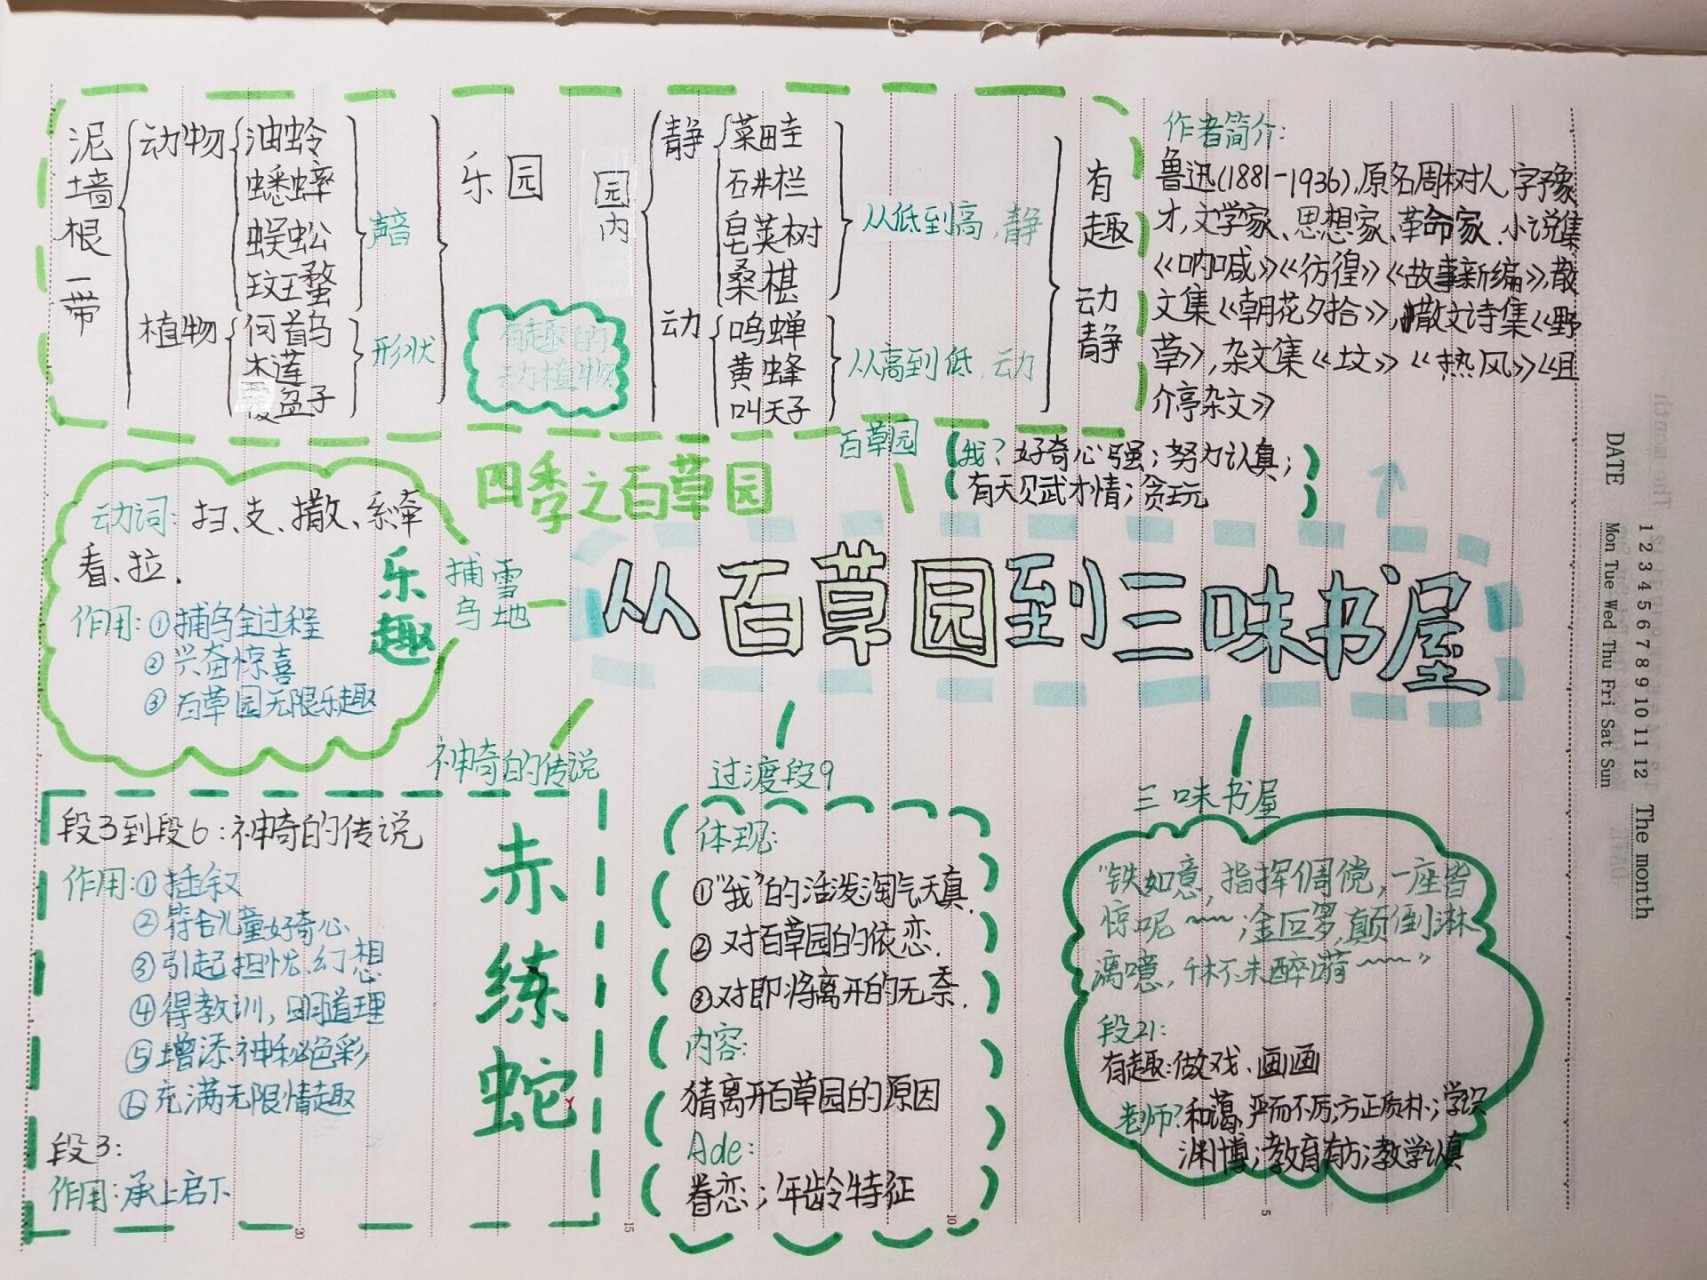 泥墙根一带
动物
油蛉
蟋蟀
蜈蚣
斑蝥
声音
植物
何首乌
木莲
覆盆子
形状
乐园
有趣的
动植物
园内
静
菜畦
石井栏
皂荚树
桑椹
从低到高,静
动
鸣蝉
黄蜂
叫天子
从高到低,动
有趣
动静
作者简介:
鲁迅(1881-1936),原名周树人,字豫
才,文学家、思想家、革命家.小说集
《呐喊》《彷徨》《故事新编》,散
文集《朝花夕拾》,散文诗集《野
草》,杂文集《坟》《热风》《且
介亭杂文》
四季之百草园
百草园
我?好奇心强;努力认真;
有天赋才情;贪玩
动词:扫、支、撒、系、牵
看、拉.
作用:①捕鸟全过程
②兴奋惊喜
③百草园无限乐趣
乐趣
捕鸟
雪地
从百草园到三味书屋
神奇的传说
段3到段6:神奇的传说
作用:①插叙
②符合儿童好奇心
③引起担忧、幻想
④得教训,明道理
⑤增添神秘色彩
⑥充满无限情趣
段3:
作用:承上启下
赤练蛇
过渡段9
体现:
①"我"的活泼淘气天真.
②对百草园的依恋.
③对即将离开的无奈.
内容:
猜离开百草园的原因
Ade:
眷恋;年龄特征
三味书屋
"铁如意,指挥倜傥,一座皆
惊呢~~;金叵罗,颠倒淋
漓噫,千杯未醉嗬~~"
段21:
有趣:做戏、画画
老师?和蔼,严而不厉;方正质朴;学识
渊博;教育有方;教学认真
DATE
1 2 3 4 5 6 7 8 9 10 11 12 The month
Mon Tue Wed Thu Fri Sat Sun
20
15
10
5